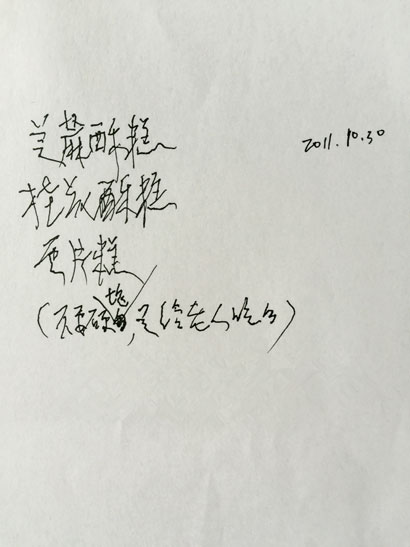 芝蔴酥糕
2011.10.30
桂花酥糕
云片糕
(不要硬塊,是给老人吃的)